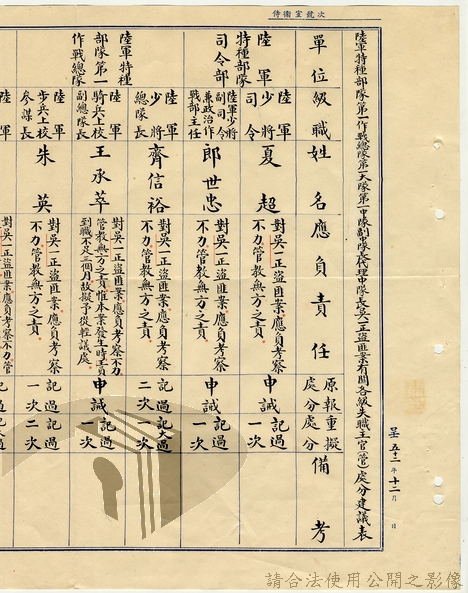 侍衛室號次
呈 五十二年 十二月 日
陸軍特種部隊第一作戰總隊第一大隊第一中隊副中隊長代理中隊長吳一正盜匪案有關各級失職主官(管)處分建議表
單位
級職
姓名
應負責任
原報處分
重擬處分
備考
陸軍特種部隊司令部
陸軍少將司令
夏超
對吳一正盜匪案應負考察不力管教無方之責
申誡一次
記過一次
陸軍少將副司令兼政治作戰部主任
郎世忠
對吳一正盜匪案應負考察不力、管教無方之責
申誡一次
記過一次
陸軍特種部隊第一作戰總隊
陸軍少將總隊長
齊信裕
對吳一正盜匪案應負考察不力、管教無方之責
記過二次
記大過一次
陸軍騎兵上校副總隊長
王承萃
對吳一正盜匪案應負考察不力管教無方之責惟本案發生時該員到職不足三個月故擬予從輕議處
申誡一次
記過一次
陸軍步兵上校參謀長
朱英
對吳一正盜匪案應負考察不力、管教無方之責
記過一次
記過二次
對吳一正盜匪案應負考察不力管
請合法使用公開之影像